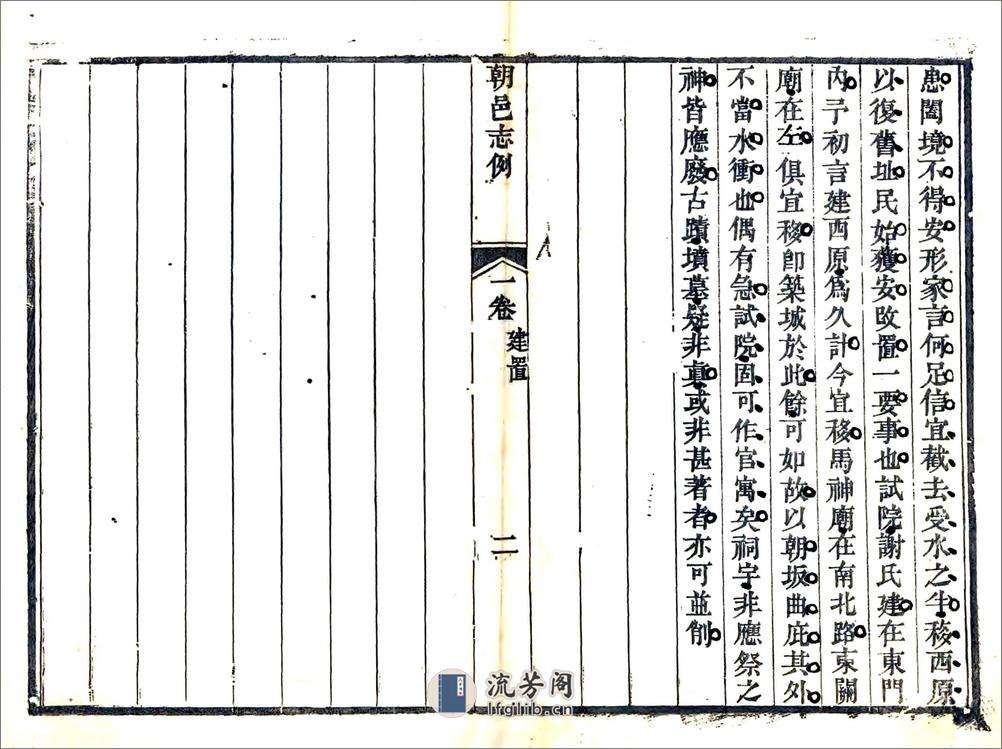 患闔境不得安形家言何足信宜截去受水之半移西原
以復舊址民始獲安改置一要事也試院謝氏建在東門
內予初言建西原爲久計今宜移馬神廟在南北路東關
廟在左俱宜移卽築城於此餘可如故以朝坂曲庇其外
不當水衝也偶有急試院固可作官寓矣祠宇非應祭之
神皆應廢古蹟墳墓疑非眞或非甚著者亦可並削
朝邑志例
一卷
建置
二
流芳阁
lfglib.cn